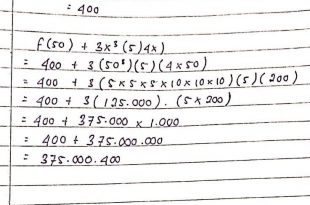 = 400
f(50) + 3x³(5)4x)
= 400 + 3(50³)(5)(4×50)
= 400 + 3(5×5×5×10×10×10)(5)(200)
= 400 + 3(125.000).(5×200)
= 400 + 375.000 × 1.000
= 400 + 375.000.000
= 375.000.400